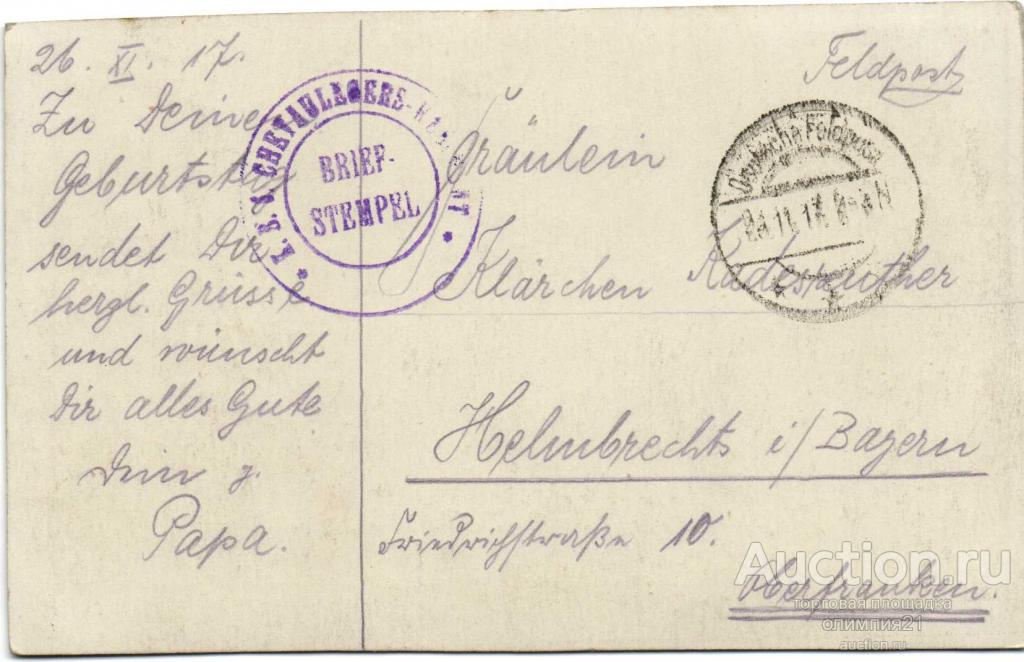 26. XI. 17.
Zu Deine
Geburtstag
sendet Dir
herzl. Grüsse
und wünscht
Dir alles Gute
Dein
Papa.
Feldpost
Fräulein
Klärchen
Helmbrechts i/Bayern
Friedrichstraße 10.
Oberfranken.
K. B. CHEVAULEGERS-REGIMENT
BRIEF-
STEMPEL
Deutsche Feldpost
11.17.
Auction.ru
торговая площадка
олимпия21
auction.ru